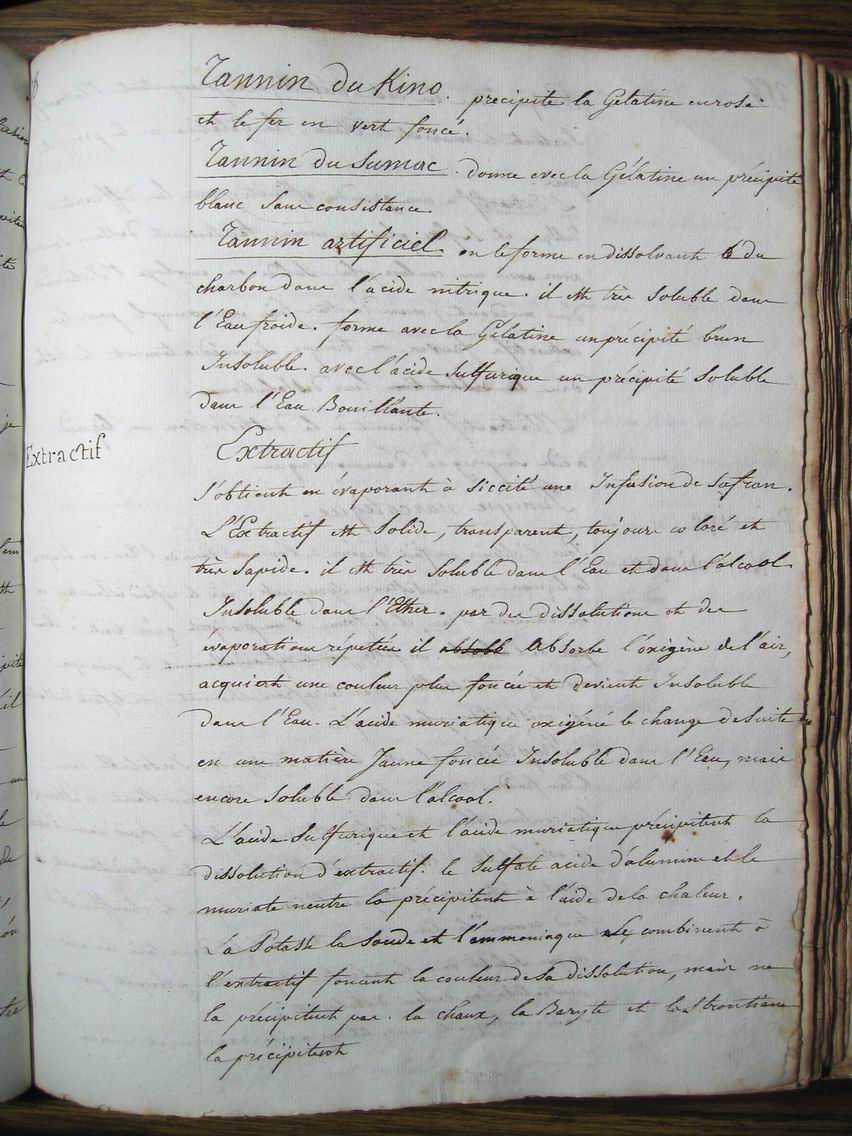 Tannin du Kino. precipite la Gelatine en rose
et le fer en vert foncé.
Tannin du Sumac. donne avec la Gélatine un précipité
blanc sans consistance.
Tannin artificiel. on le forme en dissolvant du
charbon dans l'acide nitrique. il est très soluble dans
l'Eau froide. forme avec la Gélatine un précipité brun
Insoluble. avec l'acide Sulfurique un précipité soluble
dans l'Eau Bouillante.
Extractif
Extractif
S'obtient en évaporant à siccité une Infusion de Safran.
L'Extractif est Solide, transparent, toujours coloré et
très Sapide. il est très Soluble dans l'Eau et dans l'alcool
Insoluble dans l'Ether. par des dissolutions et des
évaporations répetées il absorbe l'oxigène de l'air,
acquiert une couleur plus foncée et devient Insoluble
dans l'Eau. L'acide muriatique oxigéné le change de suite
en une matière Jaune foncée Insoluble dans l'Eau, mais
encore soluble dans l'alcool.
L'acide Sulfurique et l'acide muriatique précipitent la
dissolution d'extractif. le Sulfate acide d'alumine et le
muriate neutre la précipitent à l'aide de la chaleur.
La Potasse la Soude et l'ammoniaque se combinent à
l'extractif foncent la couleur de sa dissolution, mais ne
la précipitent pas. la chaux, la Baryte et la strontiane
la précipitent